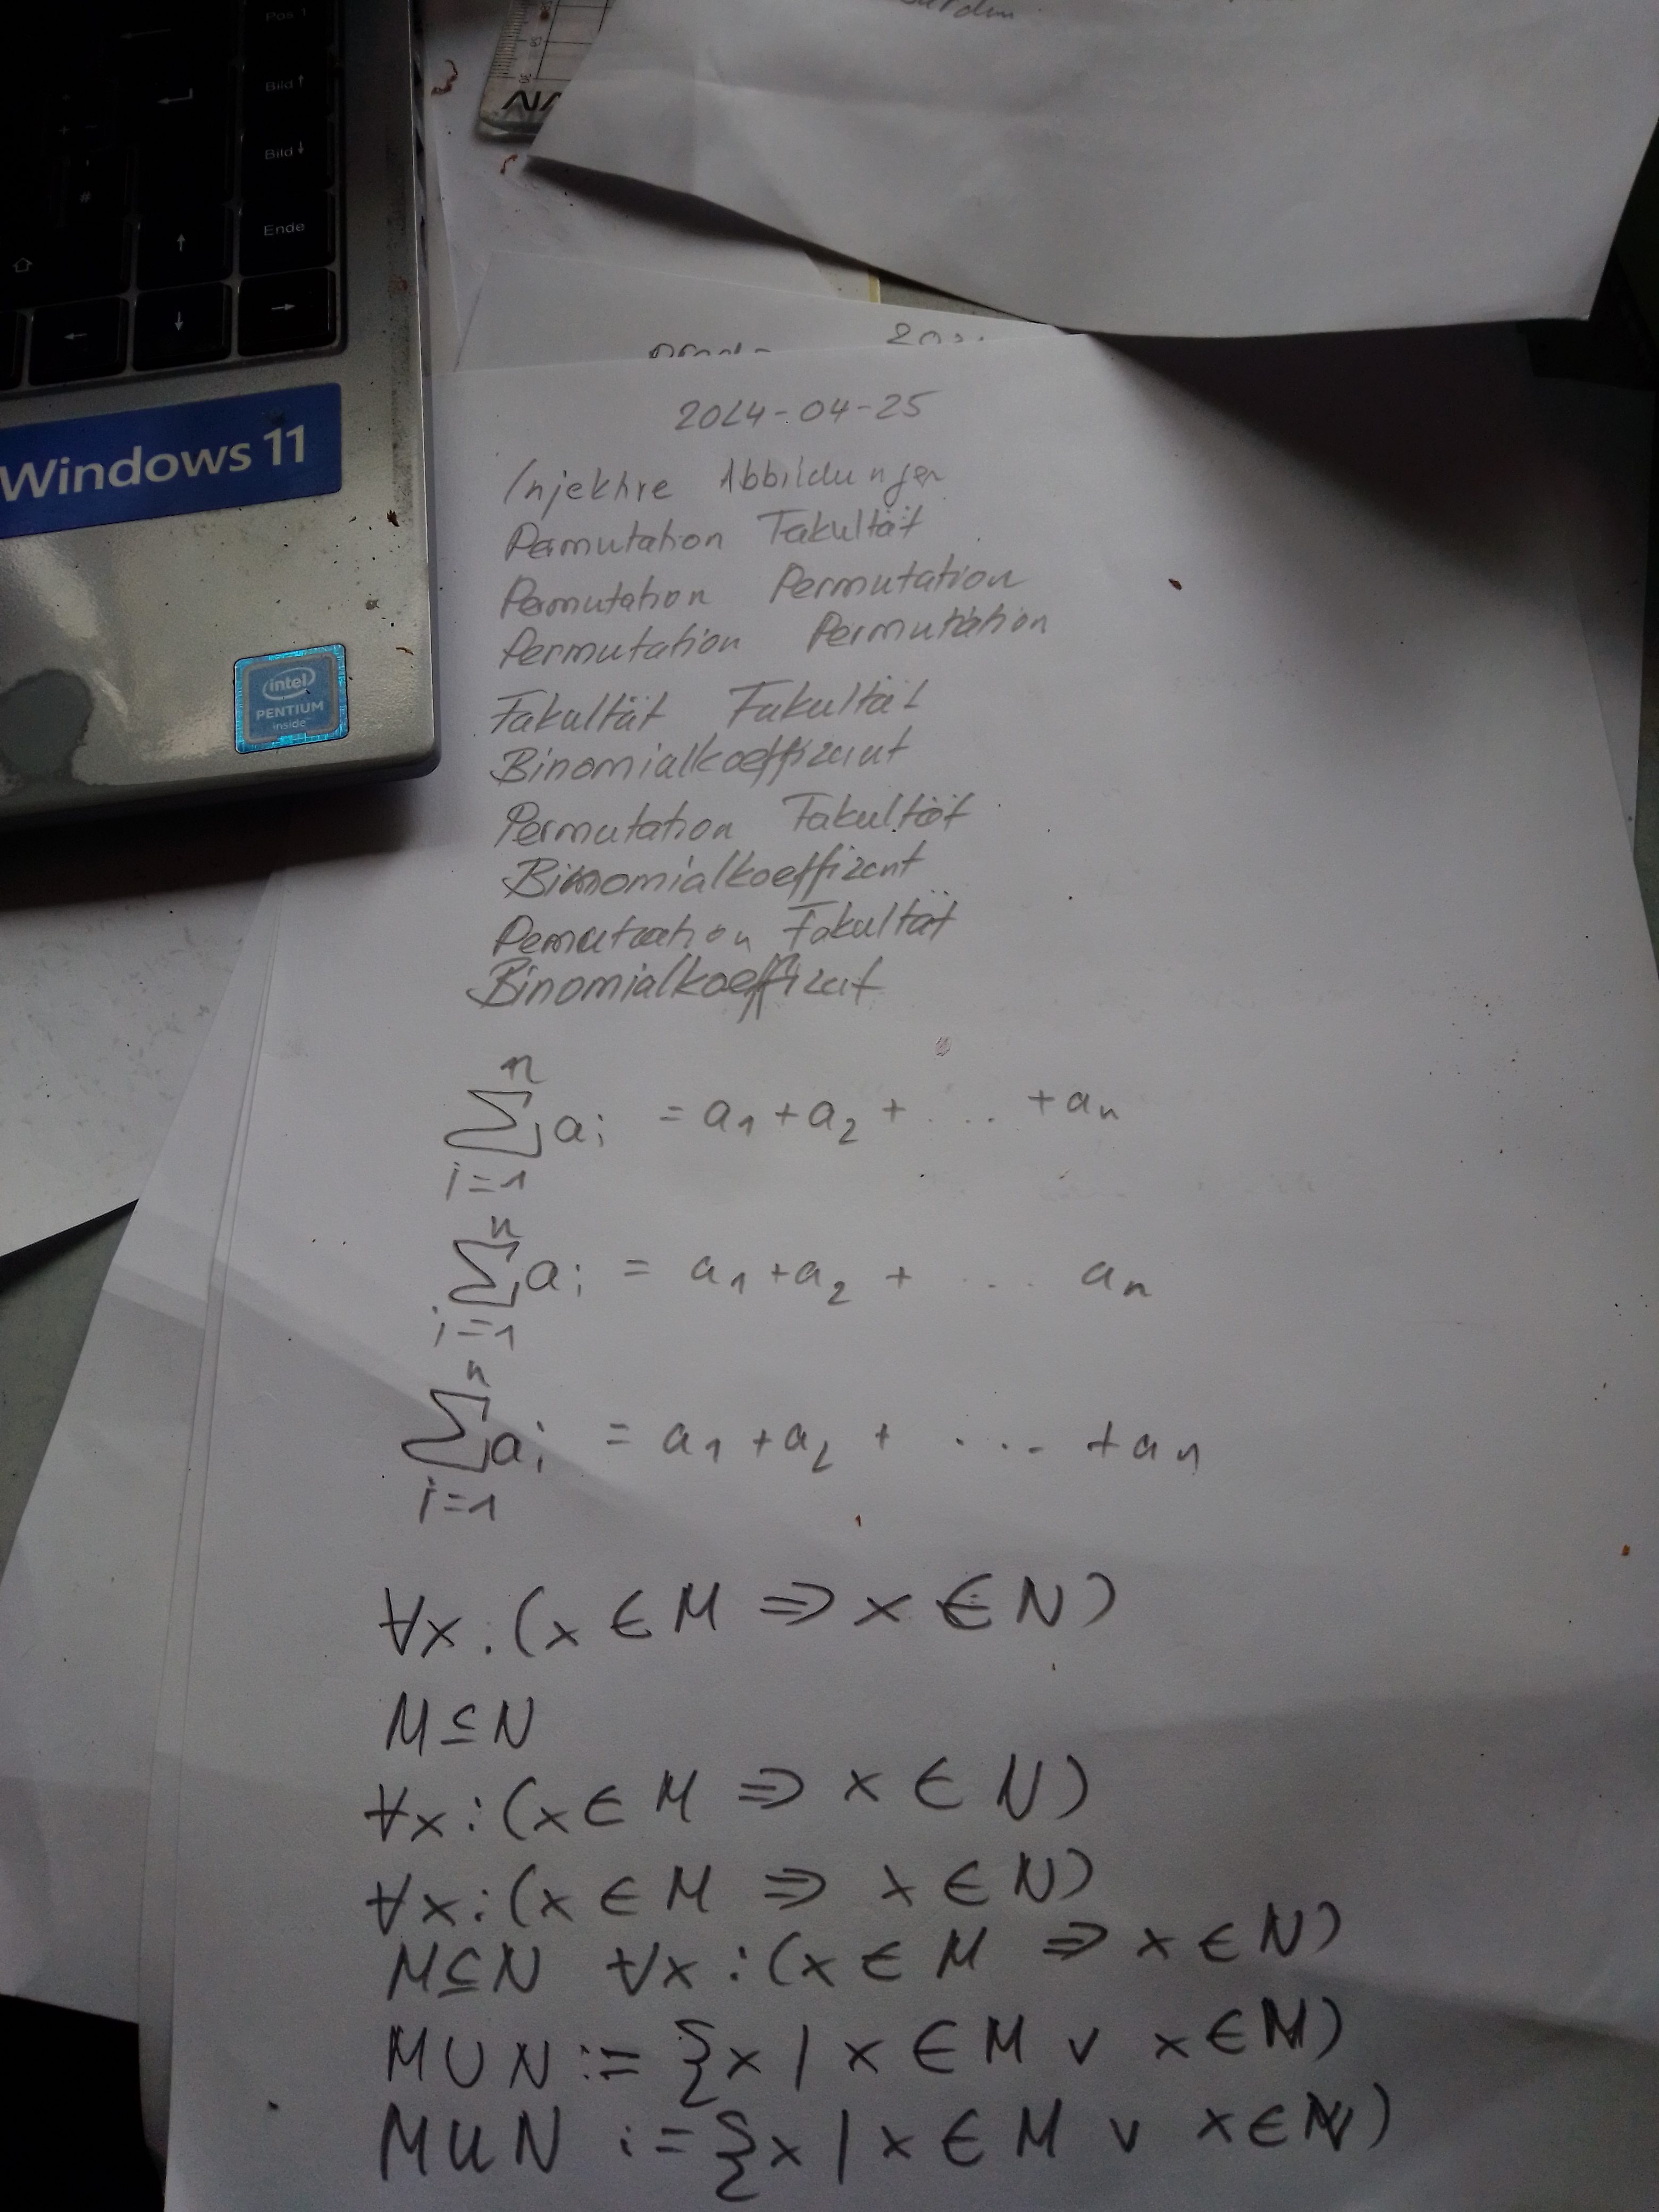 Pos 1
Bild ↑
Bild ↓
Ende
#
Windows 11
intel
PENTIUM
inside
2024-04-25
Injektive Abbildungen
Permutation Fakultät
Permutation Permutation
Permutation Permutation
Fakultät Fakultät
Binomialkoeffizient
Permutation Fakultät
Binomialkoeffizent
Permutation Fakultät
Binomialkoeffizet
n
∑ ai = a1 + a2 + .... + an
i=1
n
∑ ai = a1 + a2 + ... an
i=1
n
∑ ai = a1 + a2 + .... + an
i=1
∀x:(x ∈ M ⇒ x ∈ N)
M ⊆ N
∀x:(x ∈ M ⇒ x ∈ N)
∀x:(x ∈ M ⇒ x ∈ N)
M ⊆ N ∀x:(x ∈ M ⇒ x ∈ N)
M ∪ N := {x | x ∈ M ∨ x ∈ M)
M ∪ N := {x | x ∈ M ∨ x ∈ N)